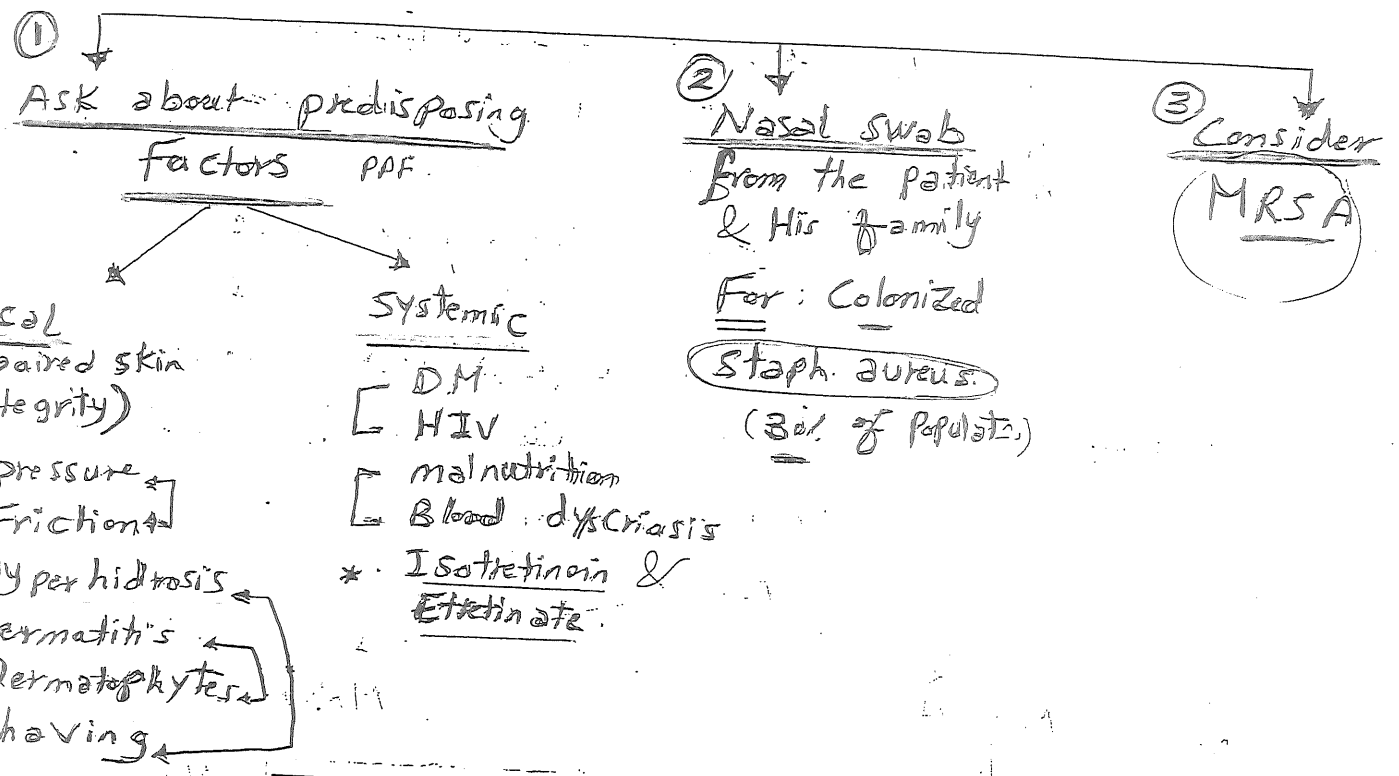 ①
Ask about predisposing
Factors PPF.
cal
paired skin
tegrity)
pressure
Friction
yperhidrosis
ermatitis
Dermatophytes
having
Systemic
D.M
HIV
malnutrition
Blood dyscriasis
* Isotretinoin &
Etretinate.
②
Nasal swab
from the patient
& His family
For : Colonized
Staph. aureus.
of Populat.)
③
Consider
MRSA